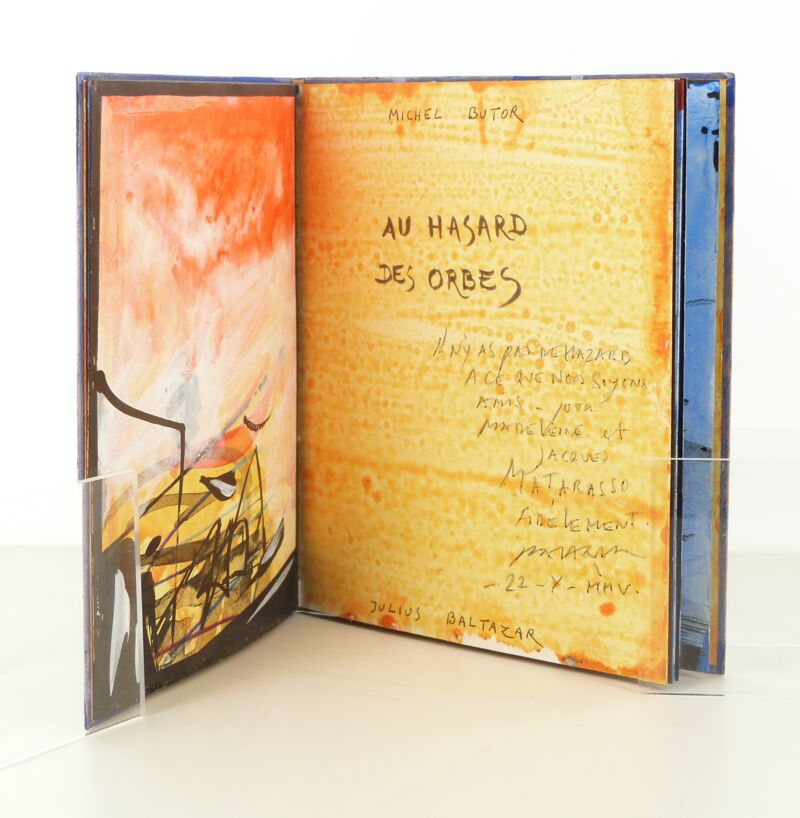 MICHEL BUTOR
AU HASARD
DES ORBES
Il N'Y AS pas DE HAZARD
A CE QUE NOUS SOYONS
AMIS - pour
MADELEINE et
JACQUES
MATARASSO
FIDÈLEMENT.
- 22 - X - MMV.
JULIUS BALTAZAR